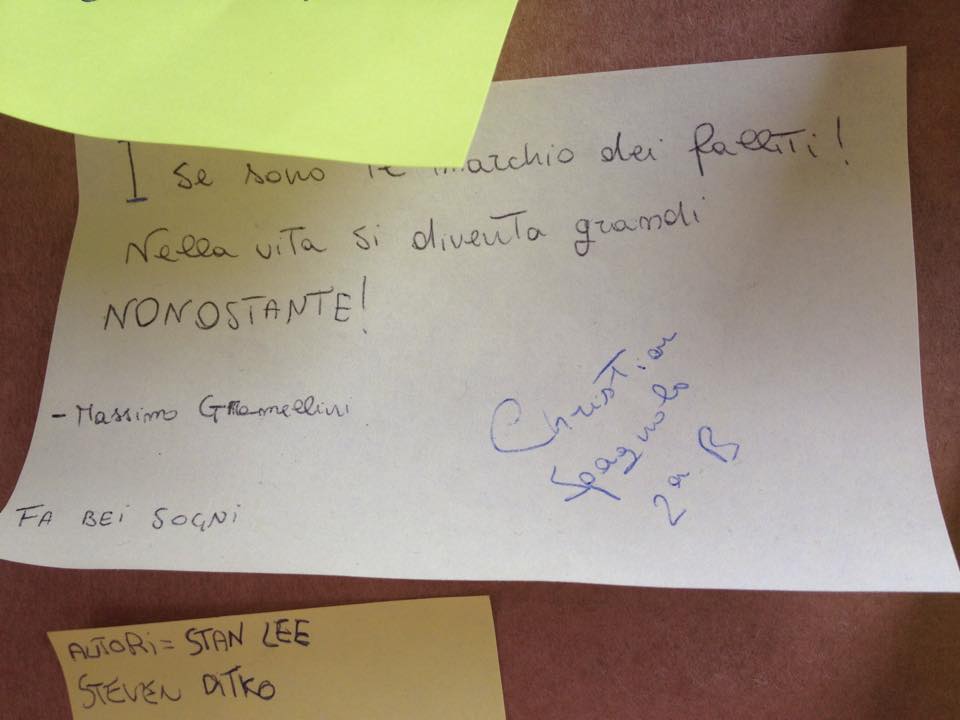 I se sono il marchio dei falliti!
Nella vita si diventa grandi
NONOSTANTE!
- Massimo Gramellini
Christian
Spagnolo
2a B
FA BEI SOGNI
AUTORI = STAN LEE
STEVEN DITKO